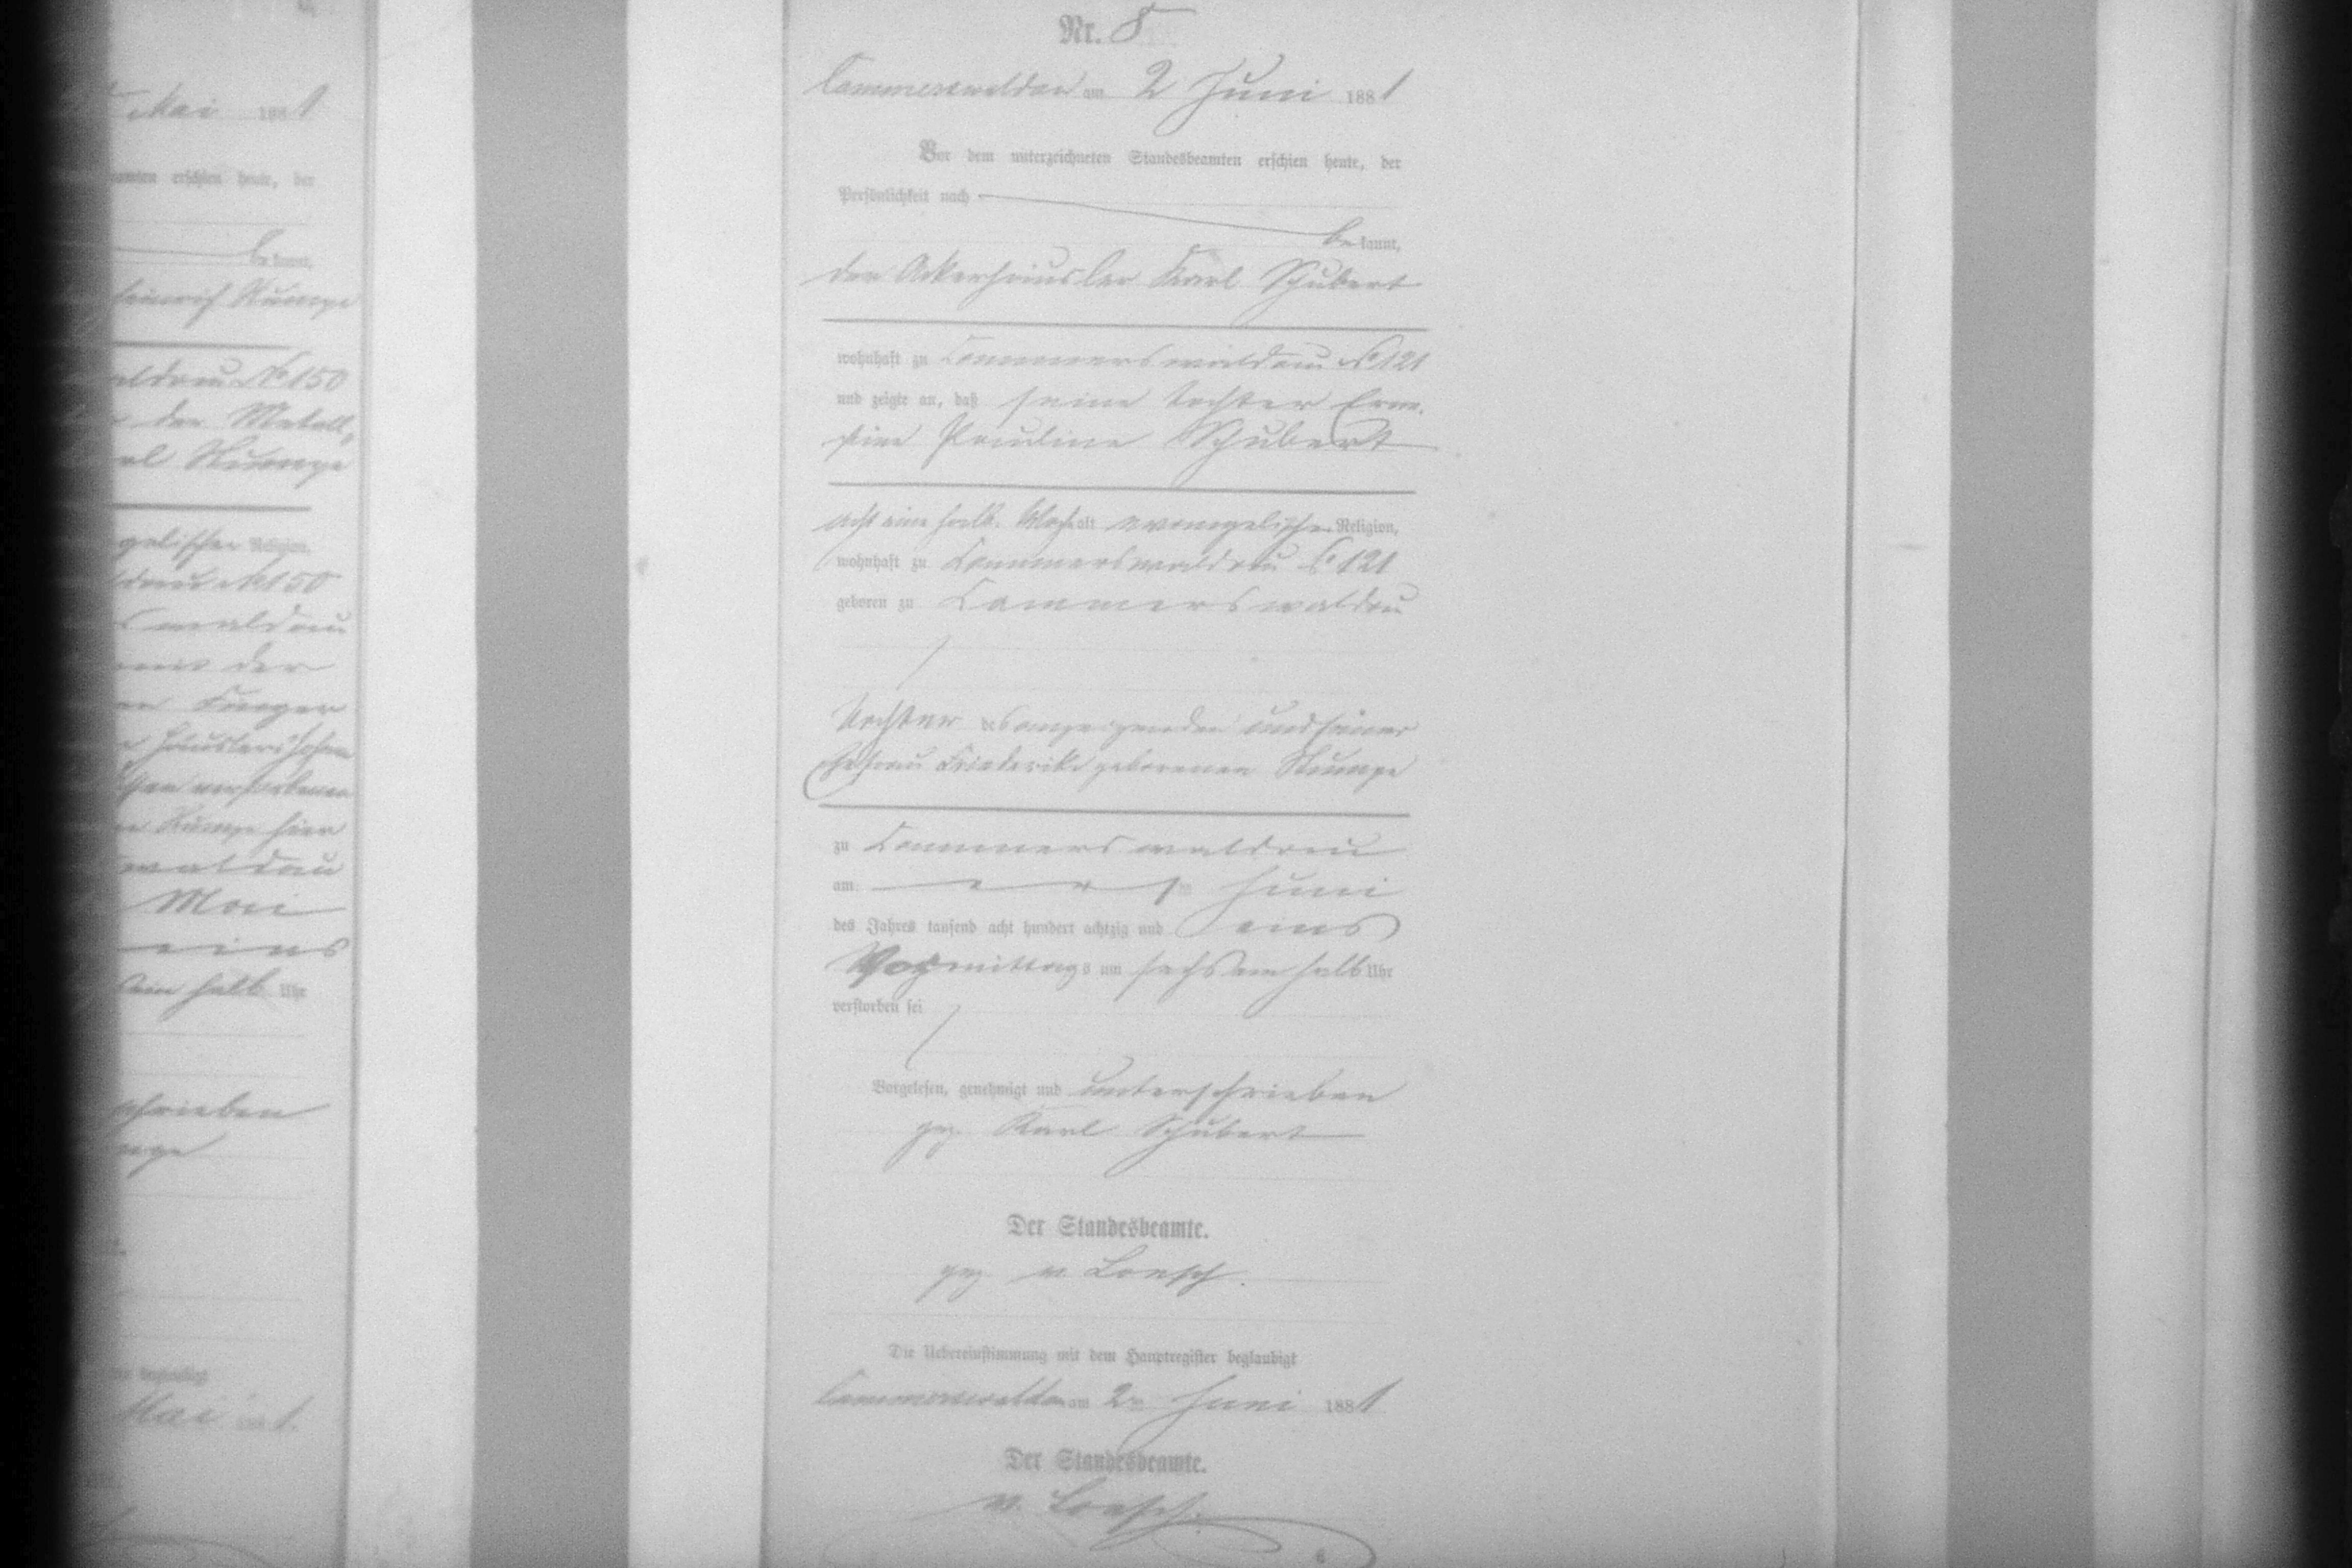 Mai 1881
erschien heute, der
bekannt,
Heinrich Stumpe
waldau No 150
der Metall„
Stumpe
evangelischer Religion,
waldau No 150
waldau
der
Häuslers Johann
verstorbenen
Stumpe hier
waldau
Mai
eins
ein halb Uhr
schrieben
Mai 1881.
Nr. 8
Cammerswaldau am 2 Juni 1881
Vor dem unterzeichneten Standesbeamten erschien heute, der
Persönlichkeit nach
bekannt,
der Ackerhäusler Karl Schubert
wohnhaft zu Cammerswaldau No 121
und zeigte an, daß seine Tochter Erne-
stine Pauline Schubert
acht ein halb. Woch alt evangelischer Religion,
wohnhaft zu Cammerswaldau No 121
geboren zu Cammerswaldau
Tochter des anzeigenden und seiner
Ehefrau Friederike geborenen Stumpe
zu Cammerswaldau
am ersten Juni
des Jahres tausend acht hundert achtzig und eins
Vormittags um sechs ein halb Uhr
verstorben sei
Vorgelesen, genehmigt und unterschrieben
gez. Karl Schubert
Der Standesbeamte.
gez. v. Loesch.
Die Uebereinstimmung mit dem Hauptregister beglaubigt
Cammerswaldau am 2ten Juni 1881
Der Standesbeamte.
v. Loesch.
6